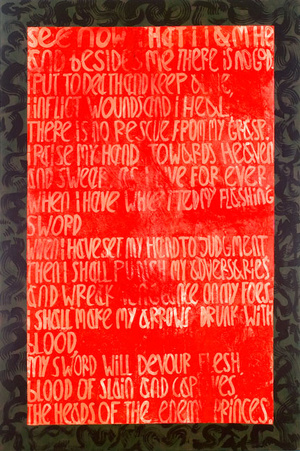 See now that i I am He
and besides me there is no God.
i put to death and keep alive,
i inflict wounds and i heal.
there is no rescue from my grasp.
i raise my hand towards heaven
and swear as i live for ever
when i have whetted my flashing
sword
when i have set my hand to judgment
then i shall punish my adversaries
and wreak vengeance on my foes.
i shall make my arrows drunk with
blood,
my sword will devour flesh,
blood of slain and captives,
the heads of the enemy princes.